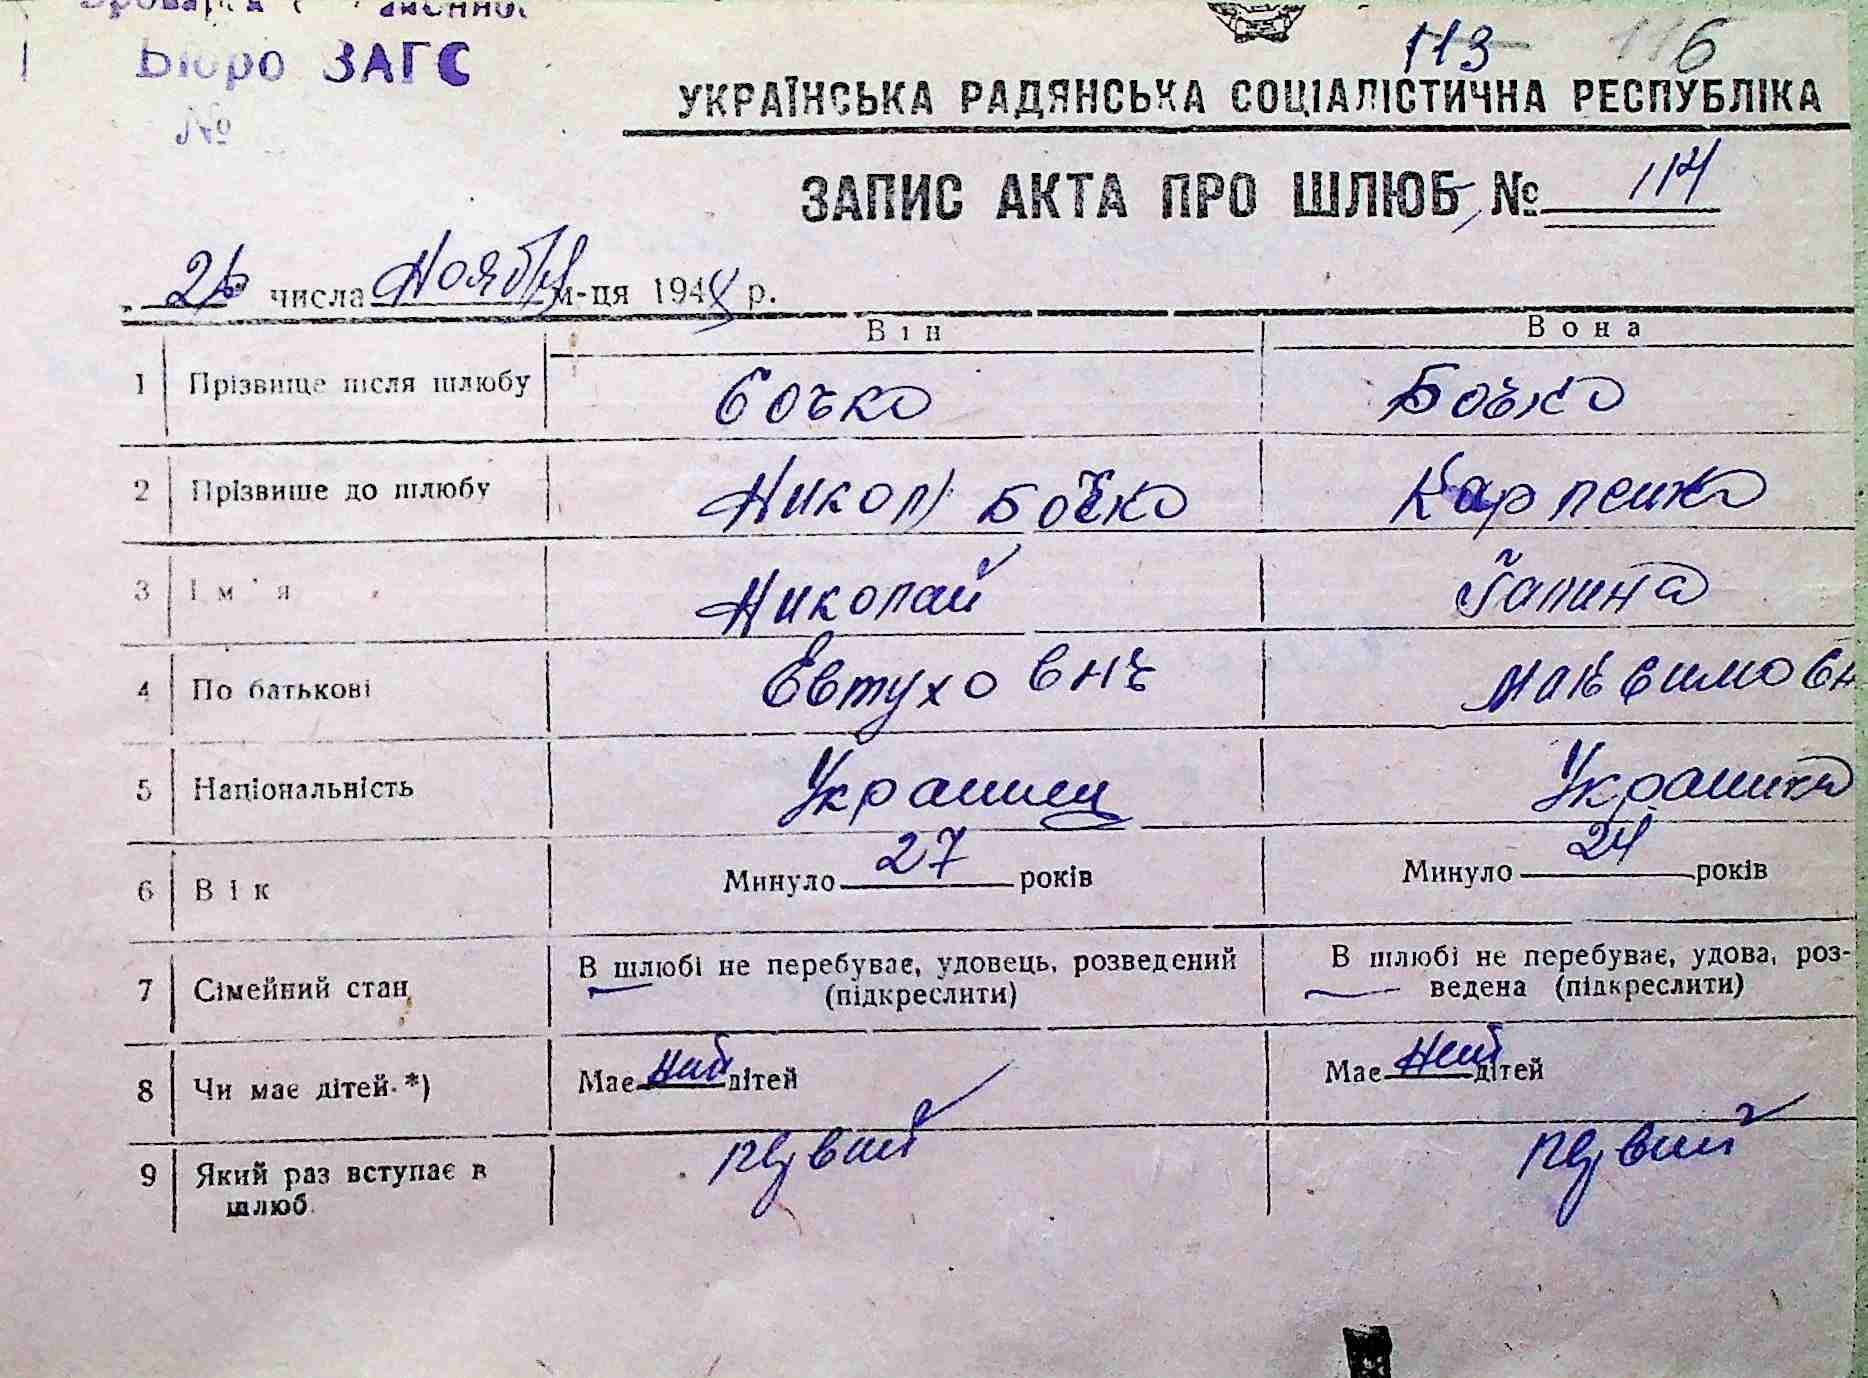 Бюро ЗАГС
№
113 116
УКРАЇНСЬКА РАДЯНСЬКА СОЦІАЛІСТИЧНА РЕСПУБЛІКА
ЗАПИС АКТА ПРО ШЛЮБ, № 114
26 числа Ноября м-ця 194 р.
Він Вона
1 Прізвище після шлюбу Бочко Бочко
2 Прізвише до шлюбу Никол Бочко Карпенко
3 Ім'я Николай Галина
4 По батькові Евтухович Максимовн
5 Національність Украинец Украинка
6 Вік Минуло 27 років Минуло 24 років
7 Сімейний стан В шлюбі не перебуває, удовець, розведений (підкреслити) В шлюбі не перебуває, удова, роз-
ведена (підкреслити)
8 Чи має дітей *) Має нет дітей Має нет дітей
9 Який раз вступає в первий первий
шлюб